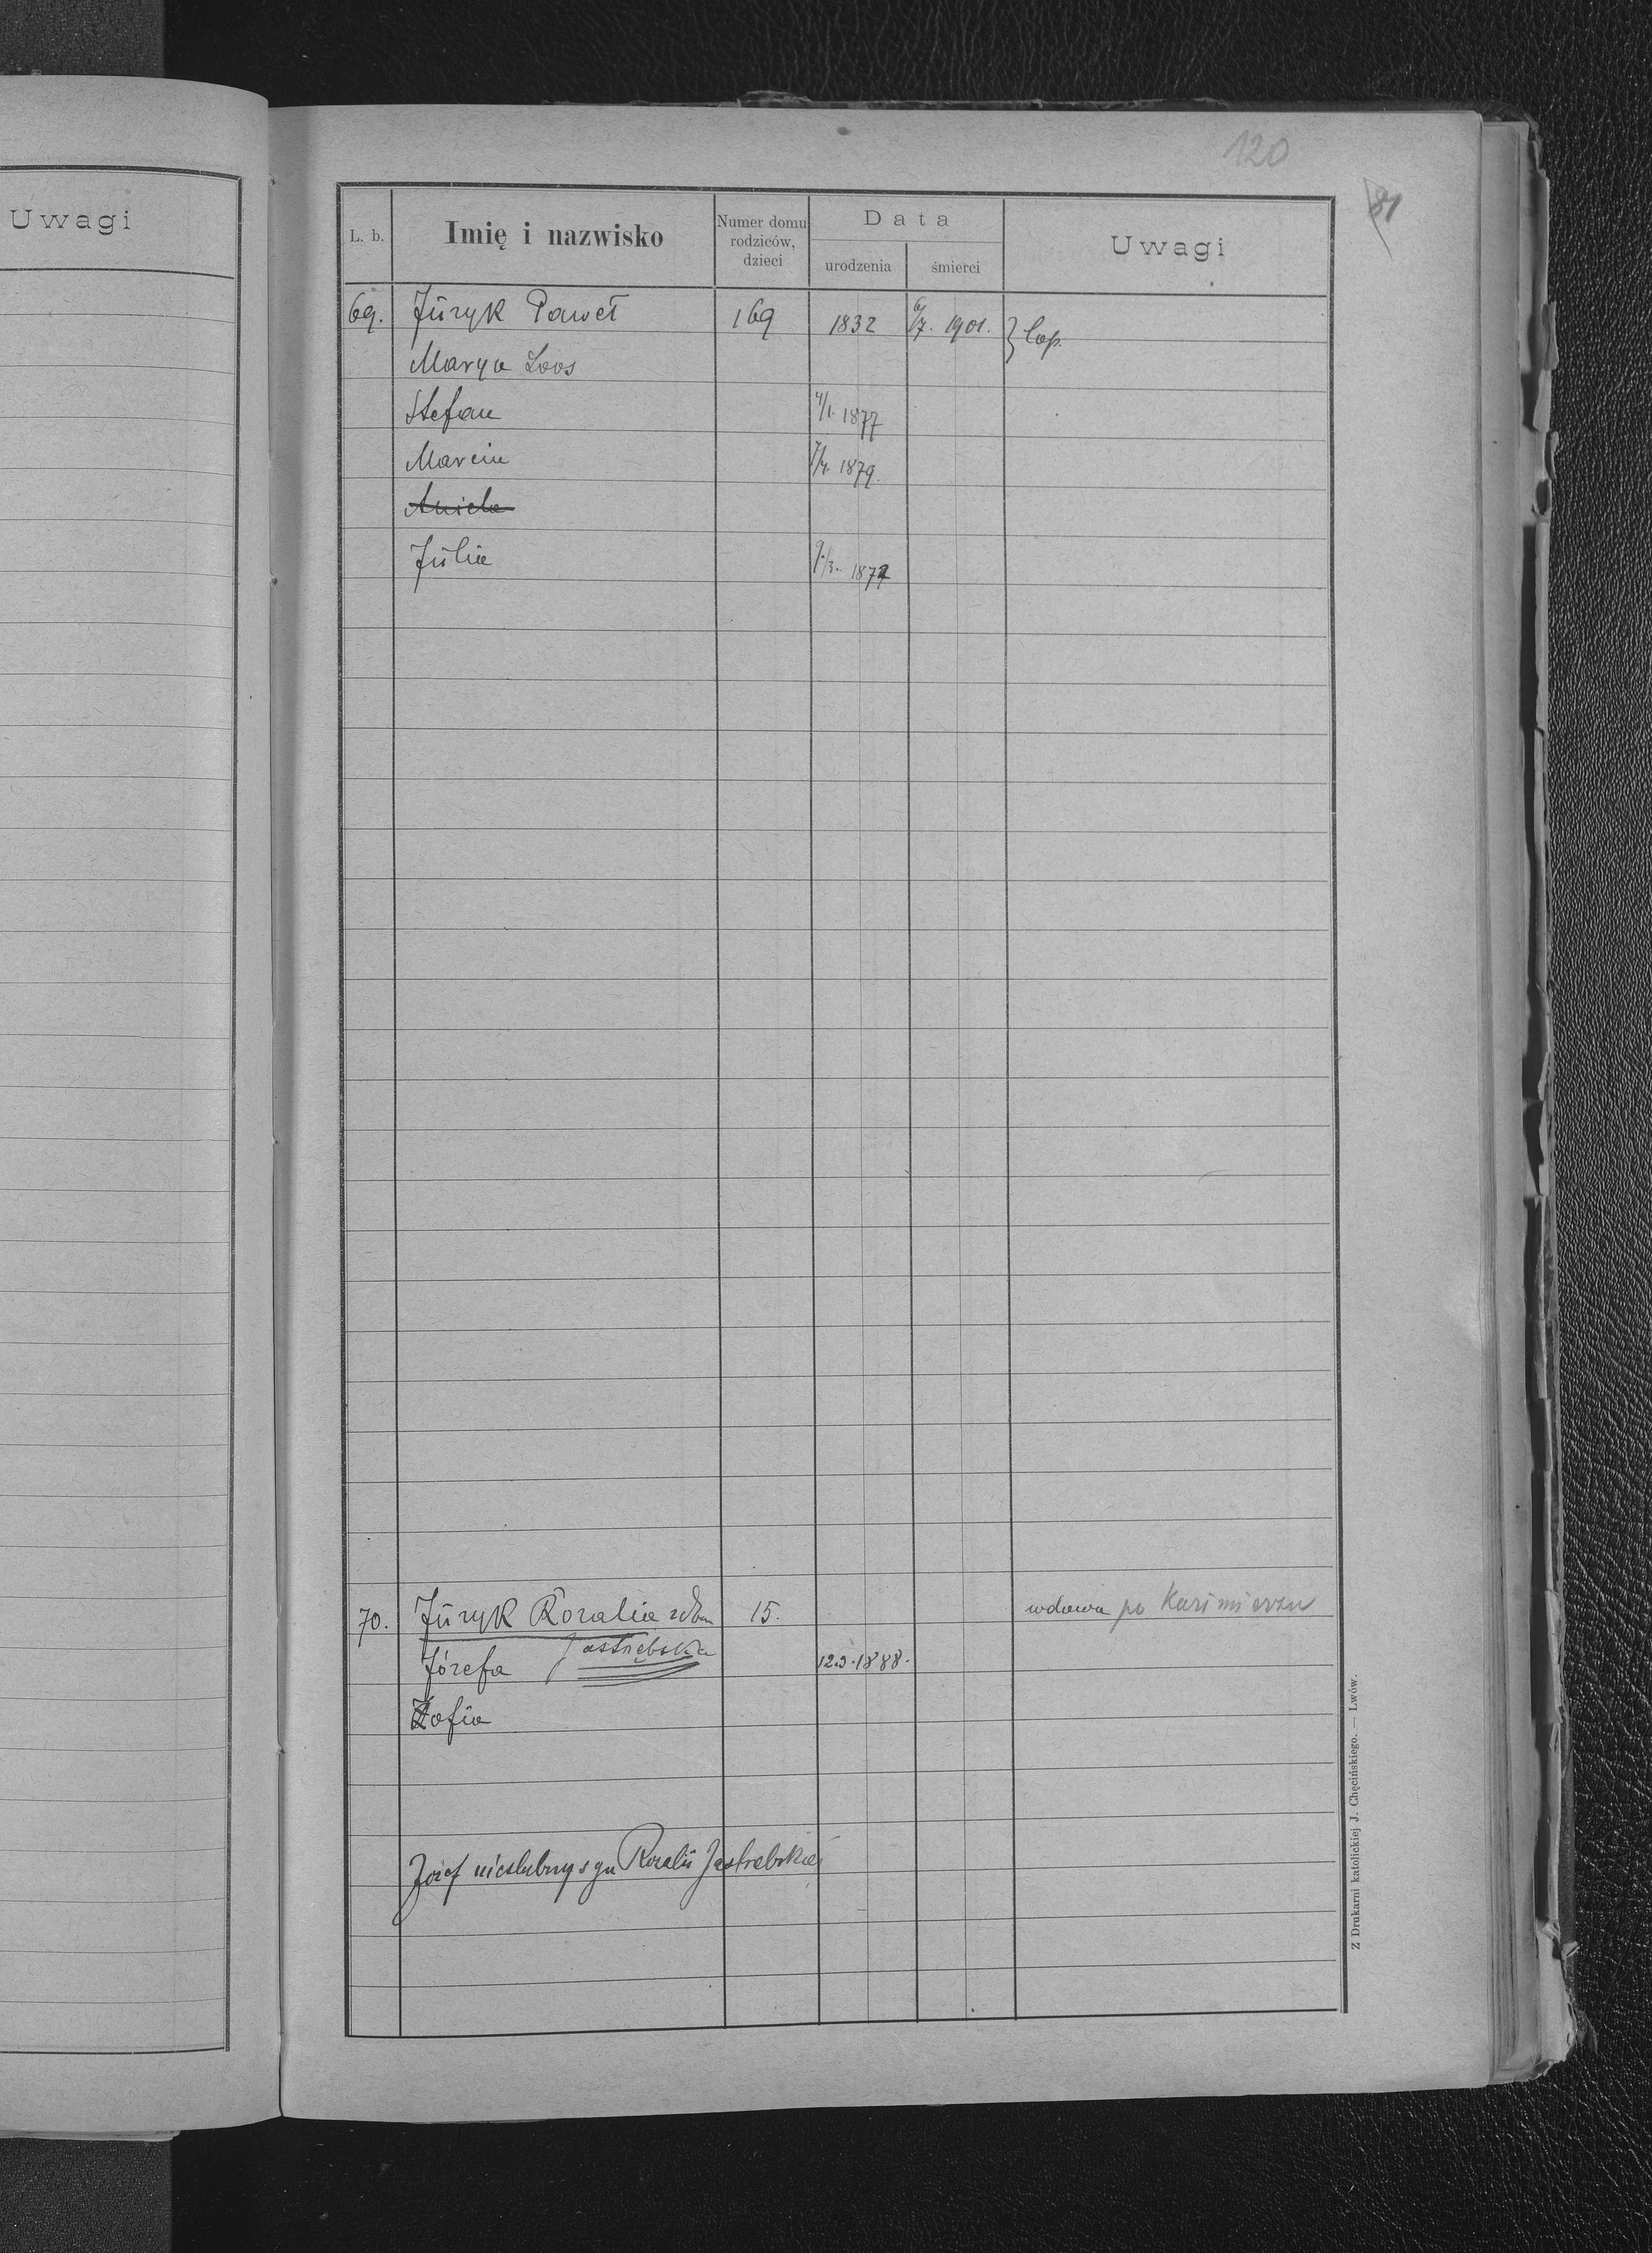 120
81
Uwagi
L. b.
Imię i nazwisko
Numer domu rodziców, dzieci
Data
urodzenia
śmierci
Uwagi
69. Juryk Paweł 169 1832 6/7. 1901. } cop.
Marya Loos
Stefan 4/1. 1877
Marcin 7/4. 1879.
Aniela
Julia 9/3. 1872
70. Juryk Rozalia z dom 15. wdowa po Kazimierzu
Jastrzębska
Józefa 12.3.1888.
Zofia
Józef nieślubny syn Rozalii Jastrzebskiej
Z Drukarni katolickiej J. Chęcińskiego. — Lwów.